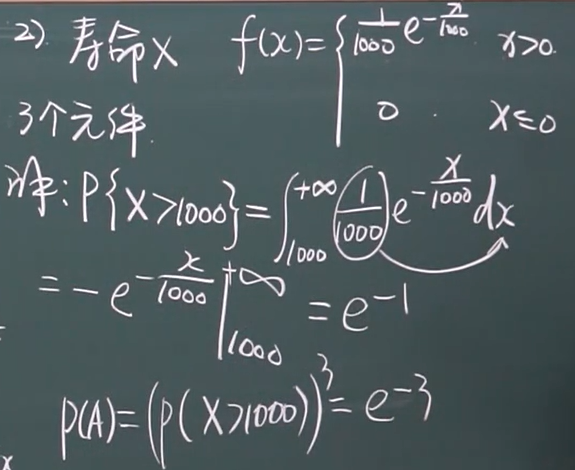 2) 寿命X f(x)={ 1/1000 e^{-x/1000} x>0
0 . x≤0
3个元件.
解: P{X>1000}=∫_{1000}^{+∞} (1/1000) e^{-x/1000} dx
= -e^{-x/1000} |_{1000}^{+∞} = e^{-1}
P(A)=(P(X>1000))^3 = e^{-3}